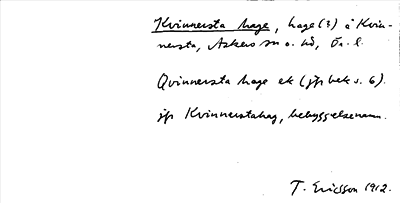 Kvinnersta hage, hage (3) å Kvin-
nersta, Askers sn o. hd, Ör. l.
Qvinnersta hage ek (jfr bek s. 6).
jfr Kvinnerstahag, bebyggelsenamn.
T. Ericsson 1912.